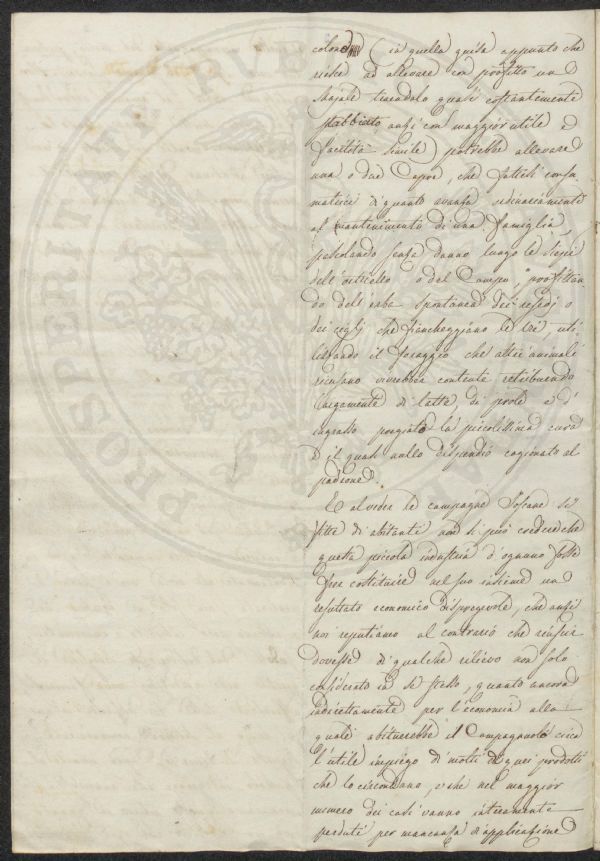 colono (in quella guisa appunto che
riesce ad allevare con profitto un
Majale tenendolo quasi costantemente
stabbiato anzi con maggior utile e
facilità simile) potrebbe allevare
una o due Capre, che fattesi consu
matrici di quanto avanza ordinariamente
al mantenimento di una famiglia,
pascolando senza danno lungo le siepi
dell'orticello o del Campo, profittan
do dell'erba spontanea dei
dei ciglj che fiancheggiano le vie, uti
lizzando il foraggio che altri animali
ricusano vivrebbe contenta retribuendo
largamente di latte, di prole e d'
ingrasso la piccolissima cura
e il quasi nullo dispendio cagionato al
padrone.
E al veder le campagne Toscane sì
fitte di abitanti non si può credere che
questa piccola industria d'ognuno fosse
per costituire nel suo insieme un
resultato economico dispregevole, che anzi
noi reputiamo al contrario che riuscir
dovesse di qualche rilievo non solo
considerato in se stesso, quanto ancora
indirettamente per l'economia alla
quale abituerebbe il Campagnolo circa
l'utile impiego di molti di quei prodotti
che lo circondano, e che nel maggior
numero dei casi vanno interamente
perduti per mancanza d'applicazione
PROSPERITATE PVBLICAE